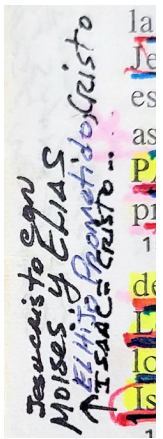 Jesucristo con
MOISES y ELIAS
EL HIJO Prometido, Cristo
↑ ISAAC = CRISTO...
la
Je
es
as
P
pr
1
de
L
lo
Is